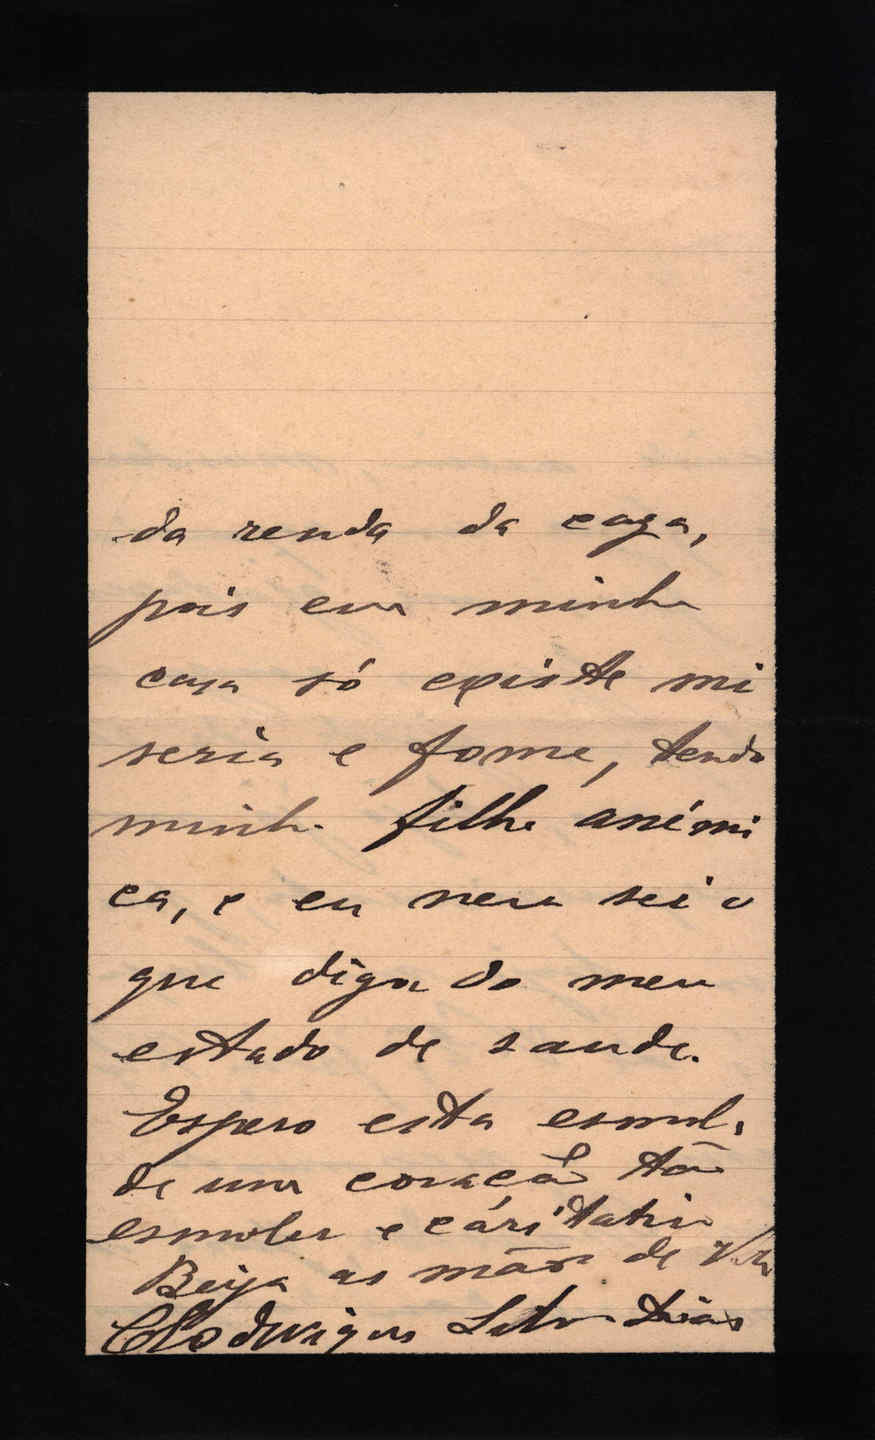 da renda da caza,
pois em minha
casa só existe mi
seria e fome, tendo
minha filha anémi
ca, e eu nem sei o
que diga do meu
estado de saude.
Espero esta esmola
de um coração tão
esmoler e cáritativo
Beija as mãos de
Clodwigus